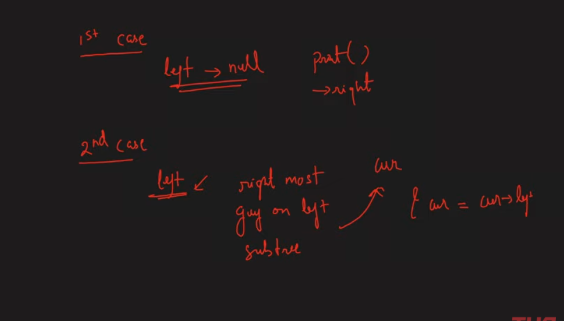 1st case
left → null
print()
→ right
2nd case
left ↙
right most
guy on left
subtree
cur
{ cur = cur→left